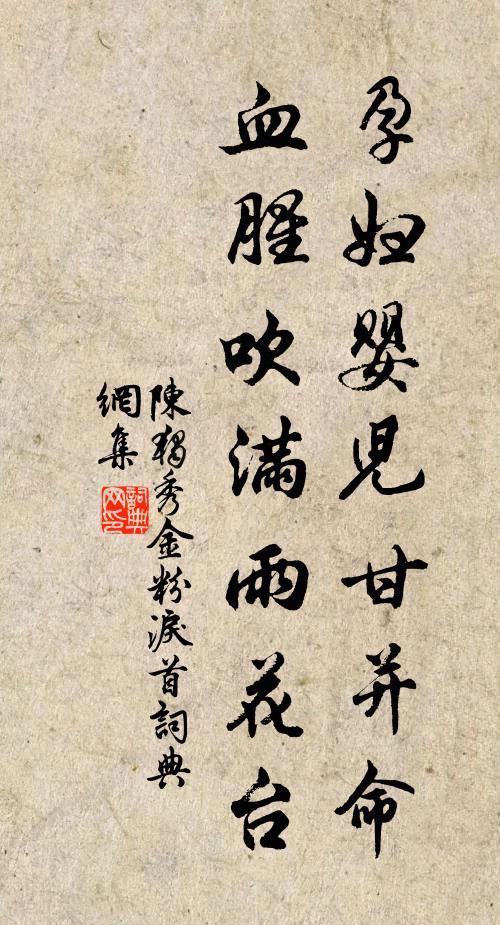 孕妇嬰児甘并命
血腥吹滿雨花台
陳獨秀金粉淚首詞典
網集
詞典网印